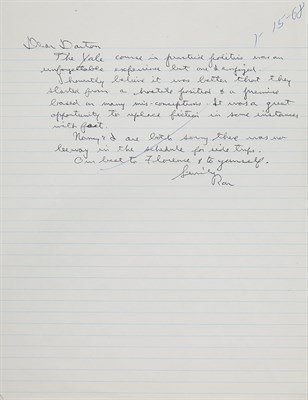 1-15-68
Dear Barton
The Yale course in practical politics was an
unforgettable experience but one I enjoyed.
I honestly believe it was better that they
started from a hostile position & a premise
based on many mis-conceptions. It was a great
opportunity to replace fiction in some instances
with fact.
Nancy & I are both sorry there was no
leeway in the schedule for side trips.
Our best to Florence & to yourself.
Sincerely
Ron